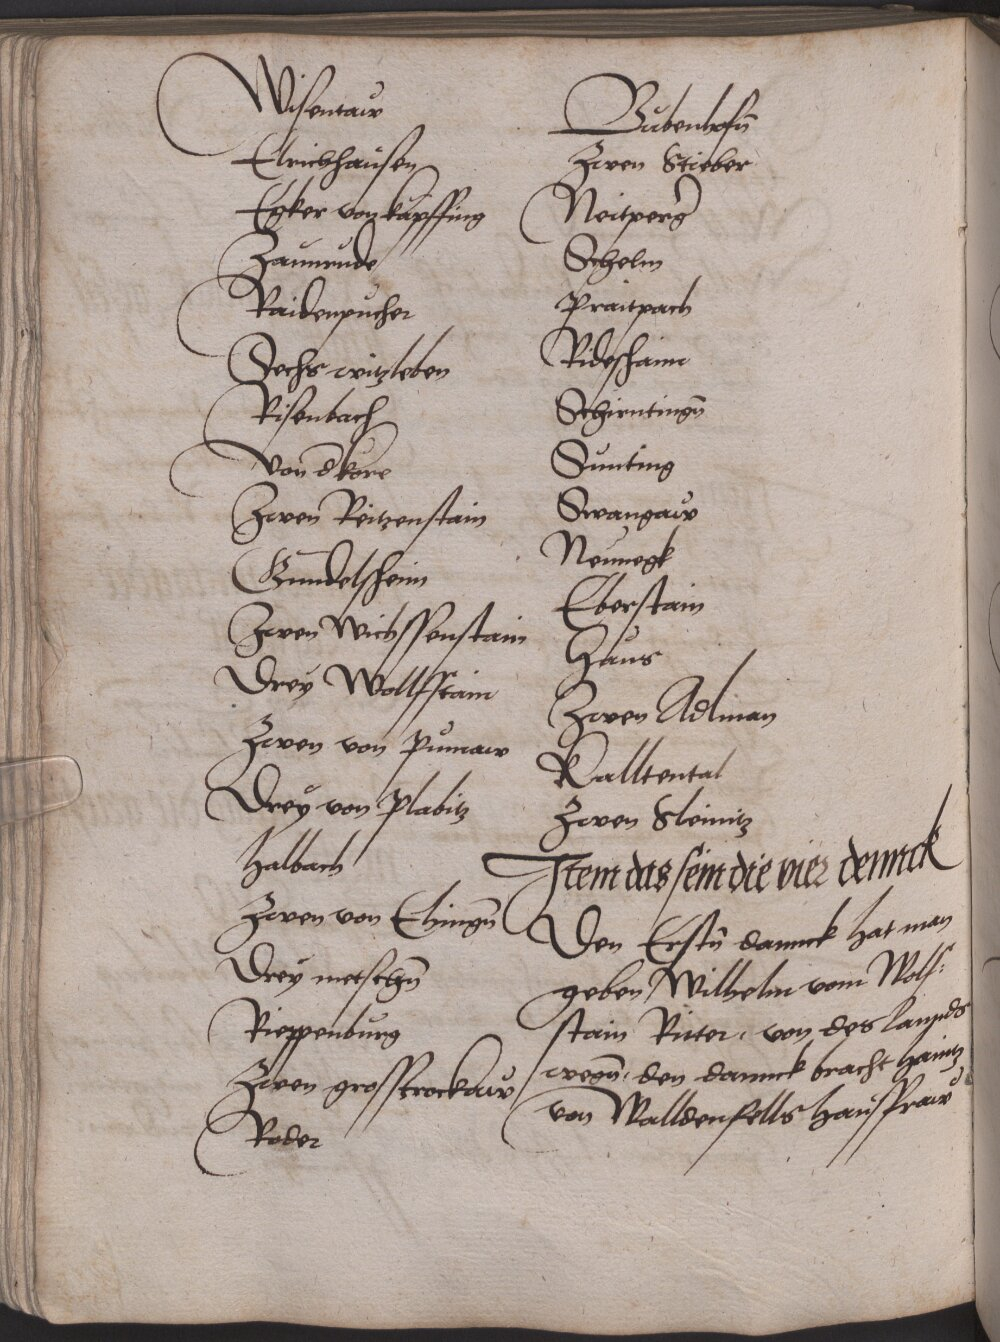 Wisentaw
Elrichshausen
Egker von käpffing
Zaunrude
Raidenpucher
Sechs witzleben
Risenbach
Von d kere
Zwen Reitzenstain
Gundelsheim
Zwen Wichssenstain
Drey Wollfstain
Zwen von Pumaw
Drey von Plabitz
Halbach
Zwen von Ehingn̄
Drey metschn̄
Rieppenburg
Zwen grosstrockaw
Roder
Bubenhofn̄
Zwen Stieber
Neitperg
Schelm
Praitpach
Rideshaim
Schirntingn̄
Sunting
Swangaw
Neunegk
Eberstain
Haus
Zwen Adlman
Kalltental
Zwen Sleinitz
Item das sein die vier dennck
Den Erstn̄ dannck hat man
geben Wilhelm vom Wolf:
stain Ritter, von des lannds
wegn̄, den dannck bracht haintz
von Walldenfells hausfraw